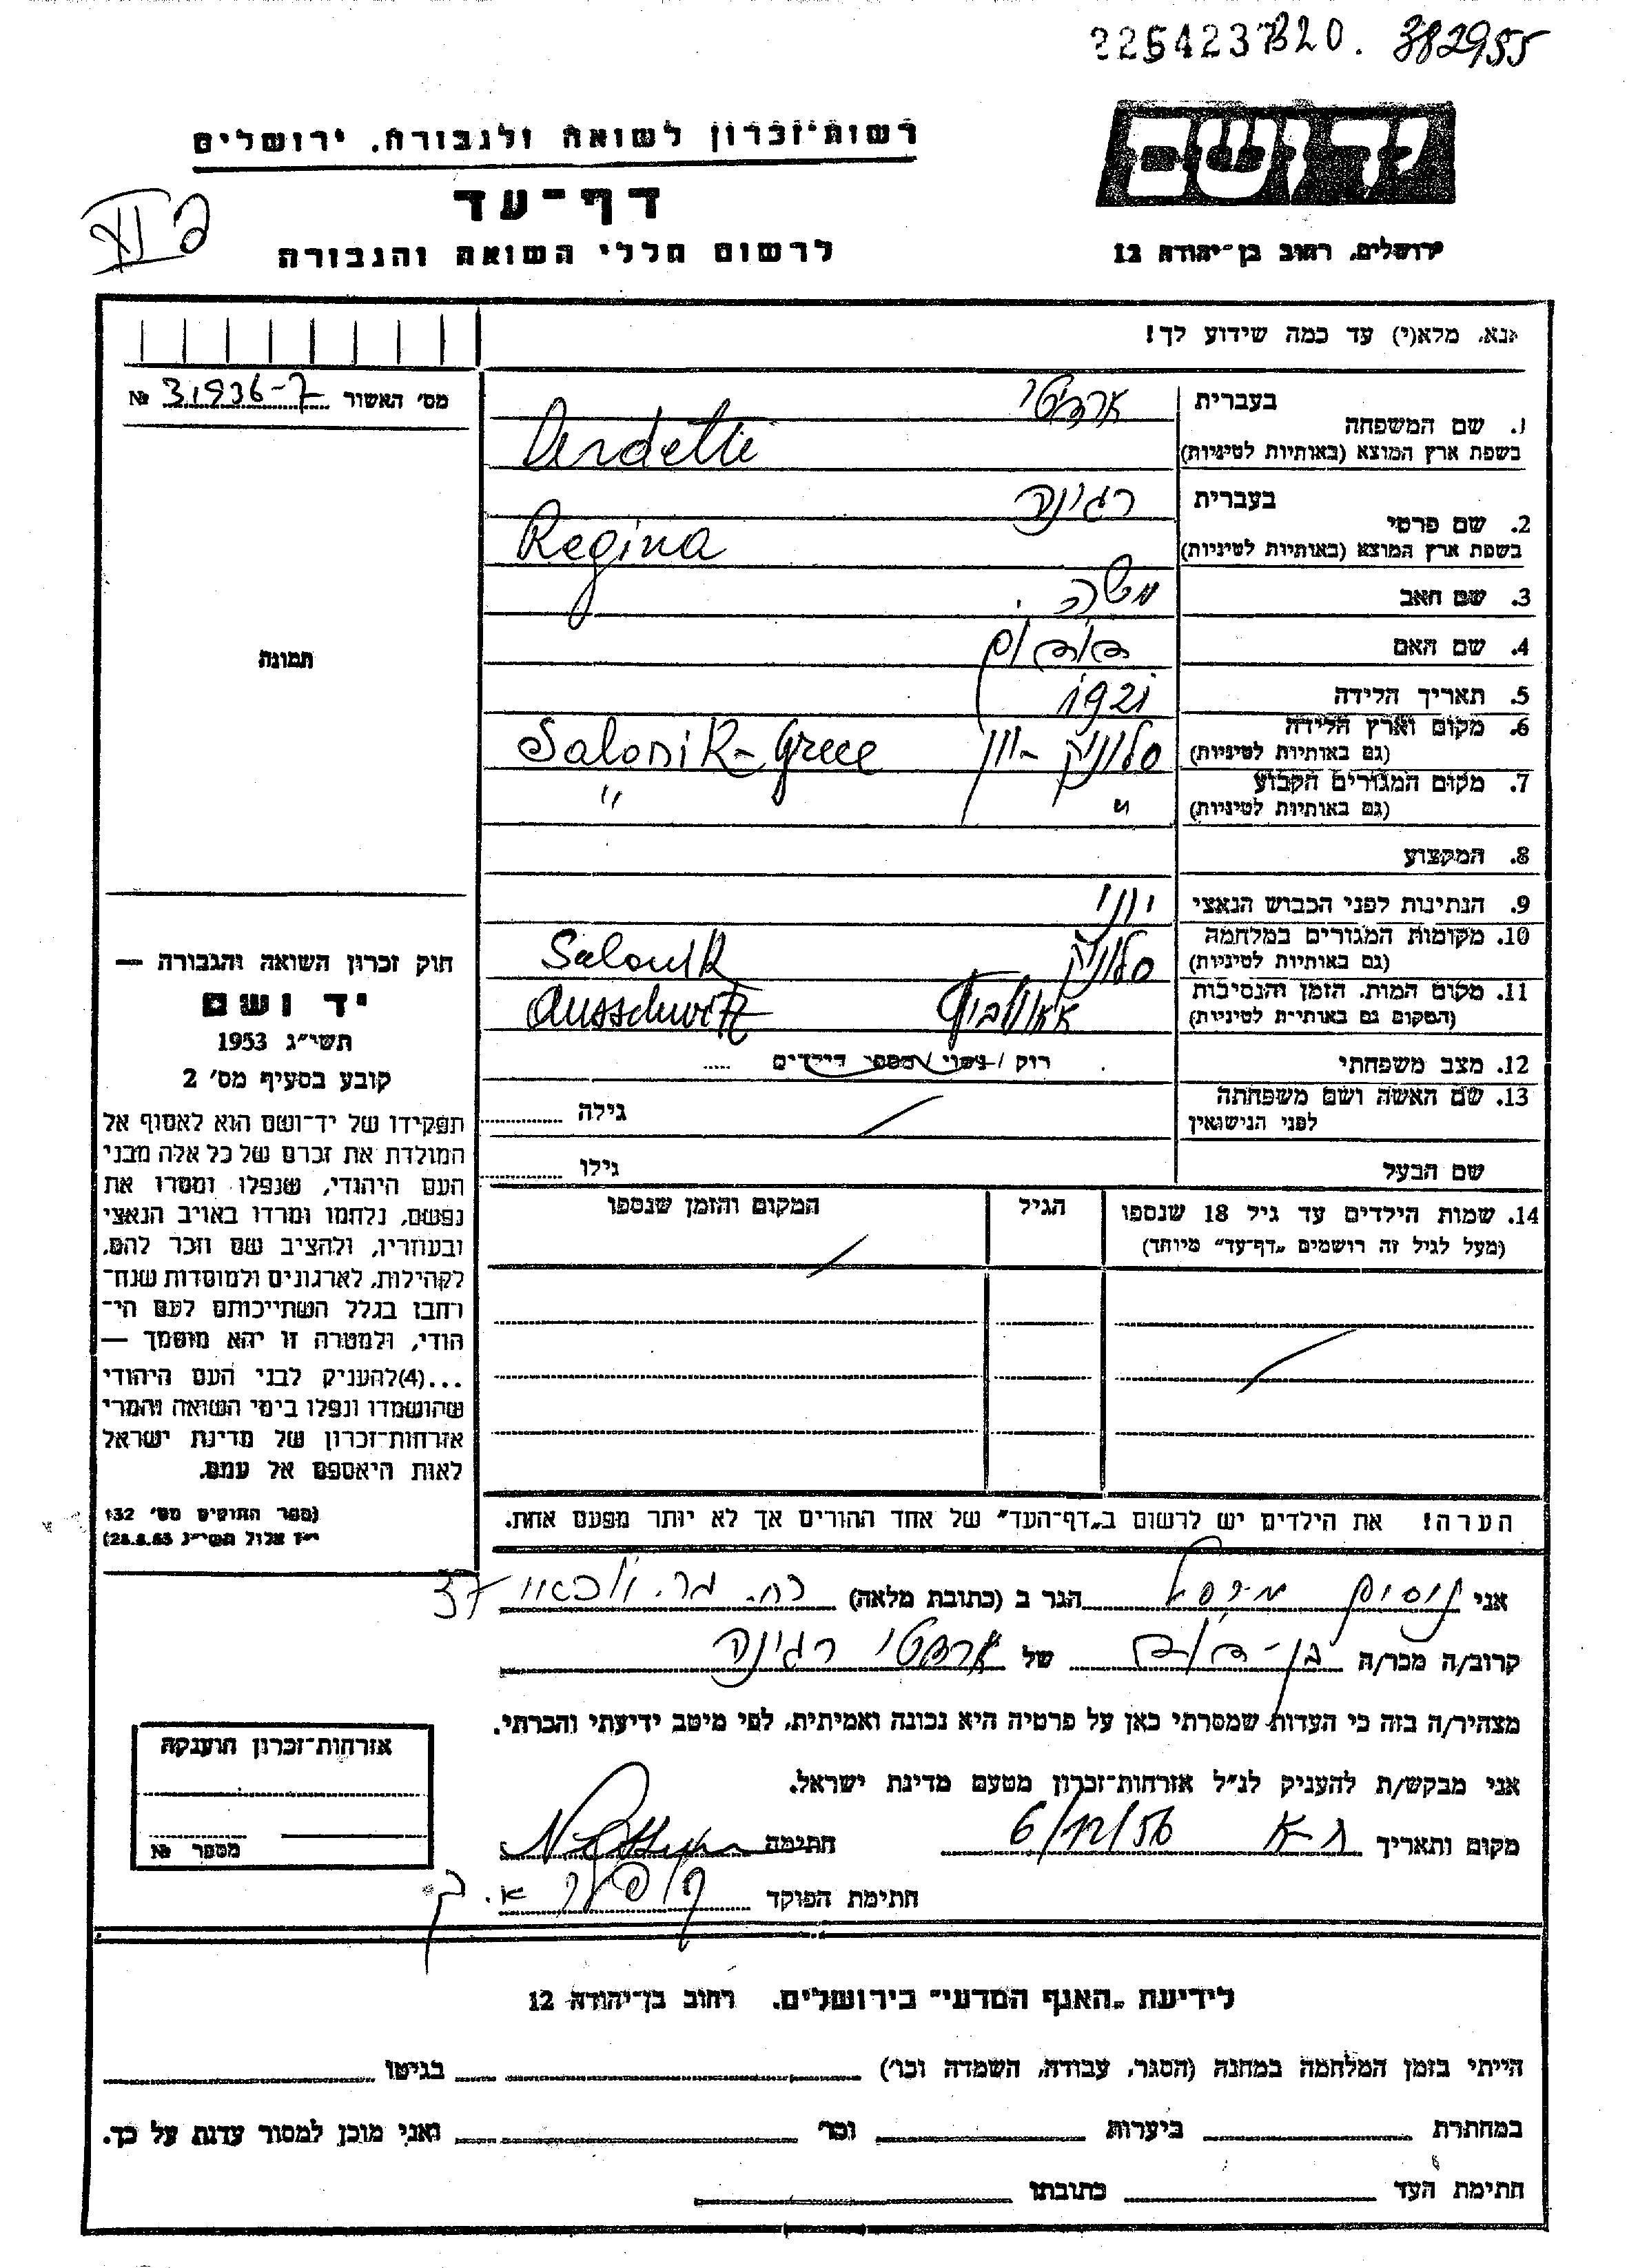 225423 B20. 382955
יד ושם
רשות־זכרון לשואה ולגבורה, ירושלים
דף־עד
לרשום חללי השואה והגבורה
ירושלים, רחוב בן־יהודה 12
אנא, מלא(י) עד כמה שידוע לך!
מס' האשור 31936-7 №
תמונה
1. שם המשפחה בעברית ארדיטי
בשפת ארץ המוצא (באותיות לטיניות) Ardetti
2. שם פרטי בעברית רגינה
בשפת ארץ המוצא (באותיות לטיניות) Regina
3. שם האב משה
4. שם האם
5. תאריך הלידה 1921
6. מקום וארץ הלידה סלוניק - יון
(גם באותיות לטיניות) Salonik - Grece
7. מקום המגורים הקבוע "
(גם באותיות לטיניות) "
8. המקצוע
9. הנתינות לפני הכבוש הנאצי יוני
10. מקומות המגורים במלחמה סלוניק
(גם באותיות לטיניות) Salonik
11. מקום המות, הזמן והנסיבות אאושביץ
(המקום גם באותיות לטיניות) Ausschwitz
12. מצב משפחתי רוק / נשוי / מספר הילדים .....
13. שם האשה ושם משפחתה גילה
לפני הנישואין
שם הבעל גילו
14. שמות הילדים עד גיל 18 שנספו הגיל המקום והזמן שנספו
(מעל לגיל זה רושמים „דף־עד" מיוחד)
הערה! את הילדים יש לרשום ב„דף־העד" של אחד ההורים אך לא יותר מפעם אחת.
חוק זכרון השואה והגבורה —
יד ושם
תשי״ג 1953
קובע בסעיף מס' 2
תפקידו של יד־ושם הוא לאסוף אל
המולדת את זכרם של כל אלה מבני
העם היהודי, שנפלו ומסרו את
נפשם, נלחמו ומרדו באויב הנאצי
ובעוזריו, ולהציב שם וזכר להם,
לקהילות, לארגונים ולמוסדות שנח־
רחבו בגלל השתייכותם לעם הי־
הודי, ולמטרה זו יהא מוסמך —
...(4)להעניק לבני העם היהודי
שהושמדו ונפלו בימי השואה והמרי
אזרחות־זכרון של מדינת ישראל
לאות היאספם אל עמם.
(ספר החוקים מס' 132
י״ז אלול תשי״ג 28.8.53)
אני נוסים הגר ב (כתובת מלאה) 37
קרוב/ה מכר/ה בן־דוד של ארדטי רגינה
מצהיר/ה בזה כי העדות שמסרתי כאן על פרטיה היא נכונה ואמיתית, לפי מיטב ידיעתי והכרתי.
אני מבקש/ת להעניק לנ״ל אזרחות־זכרון מטעם מדינת ישראל.
מקום ותאריך ת־א 6/12/56 חתימה
חתימת הפוקד
אזרחות־זכרון הוענקה
מספר №
לידיעת „האגף המדעי" בירושלים, רחוב בן־יהודה 12
הייתי בזמן המלחמה במחנה (הסגר, עבודה, השמדה וכו') בגיטו
במחתרת ביערות וכו' ואני מוכן למסור עדות על כך.
חתימת העד כתובתו